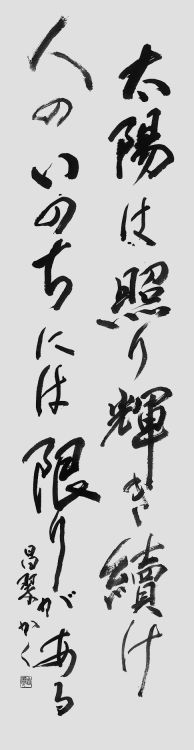 太陽は照り輝き続け
人のいのちには限りがある
昌琴かく